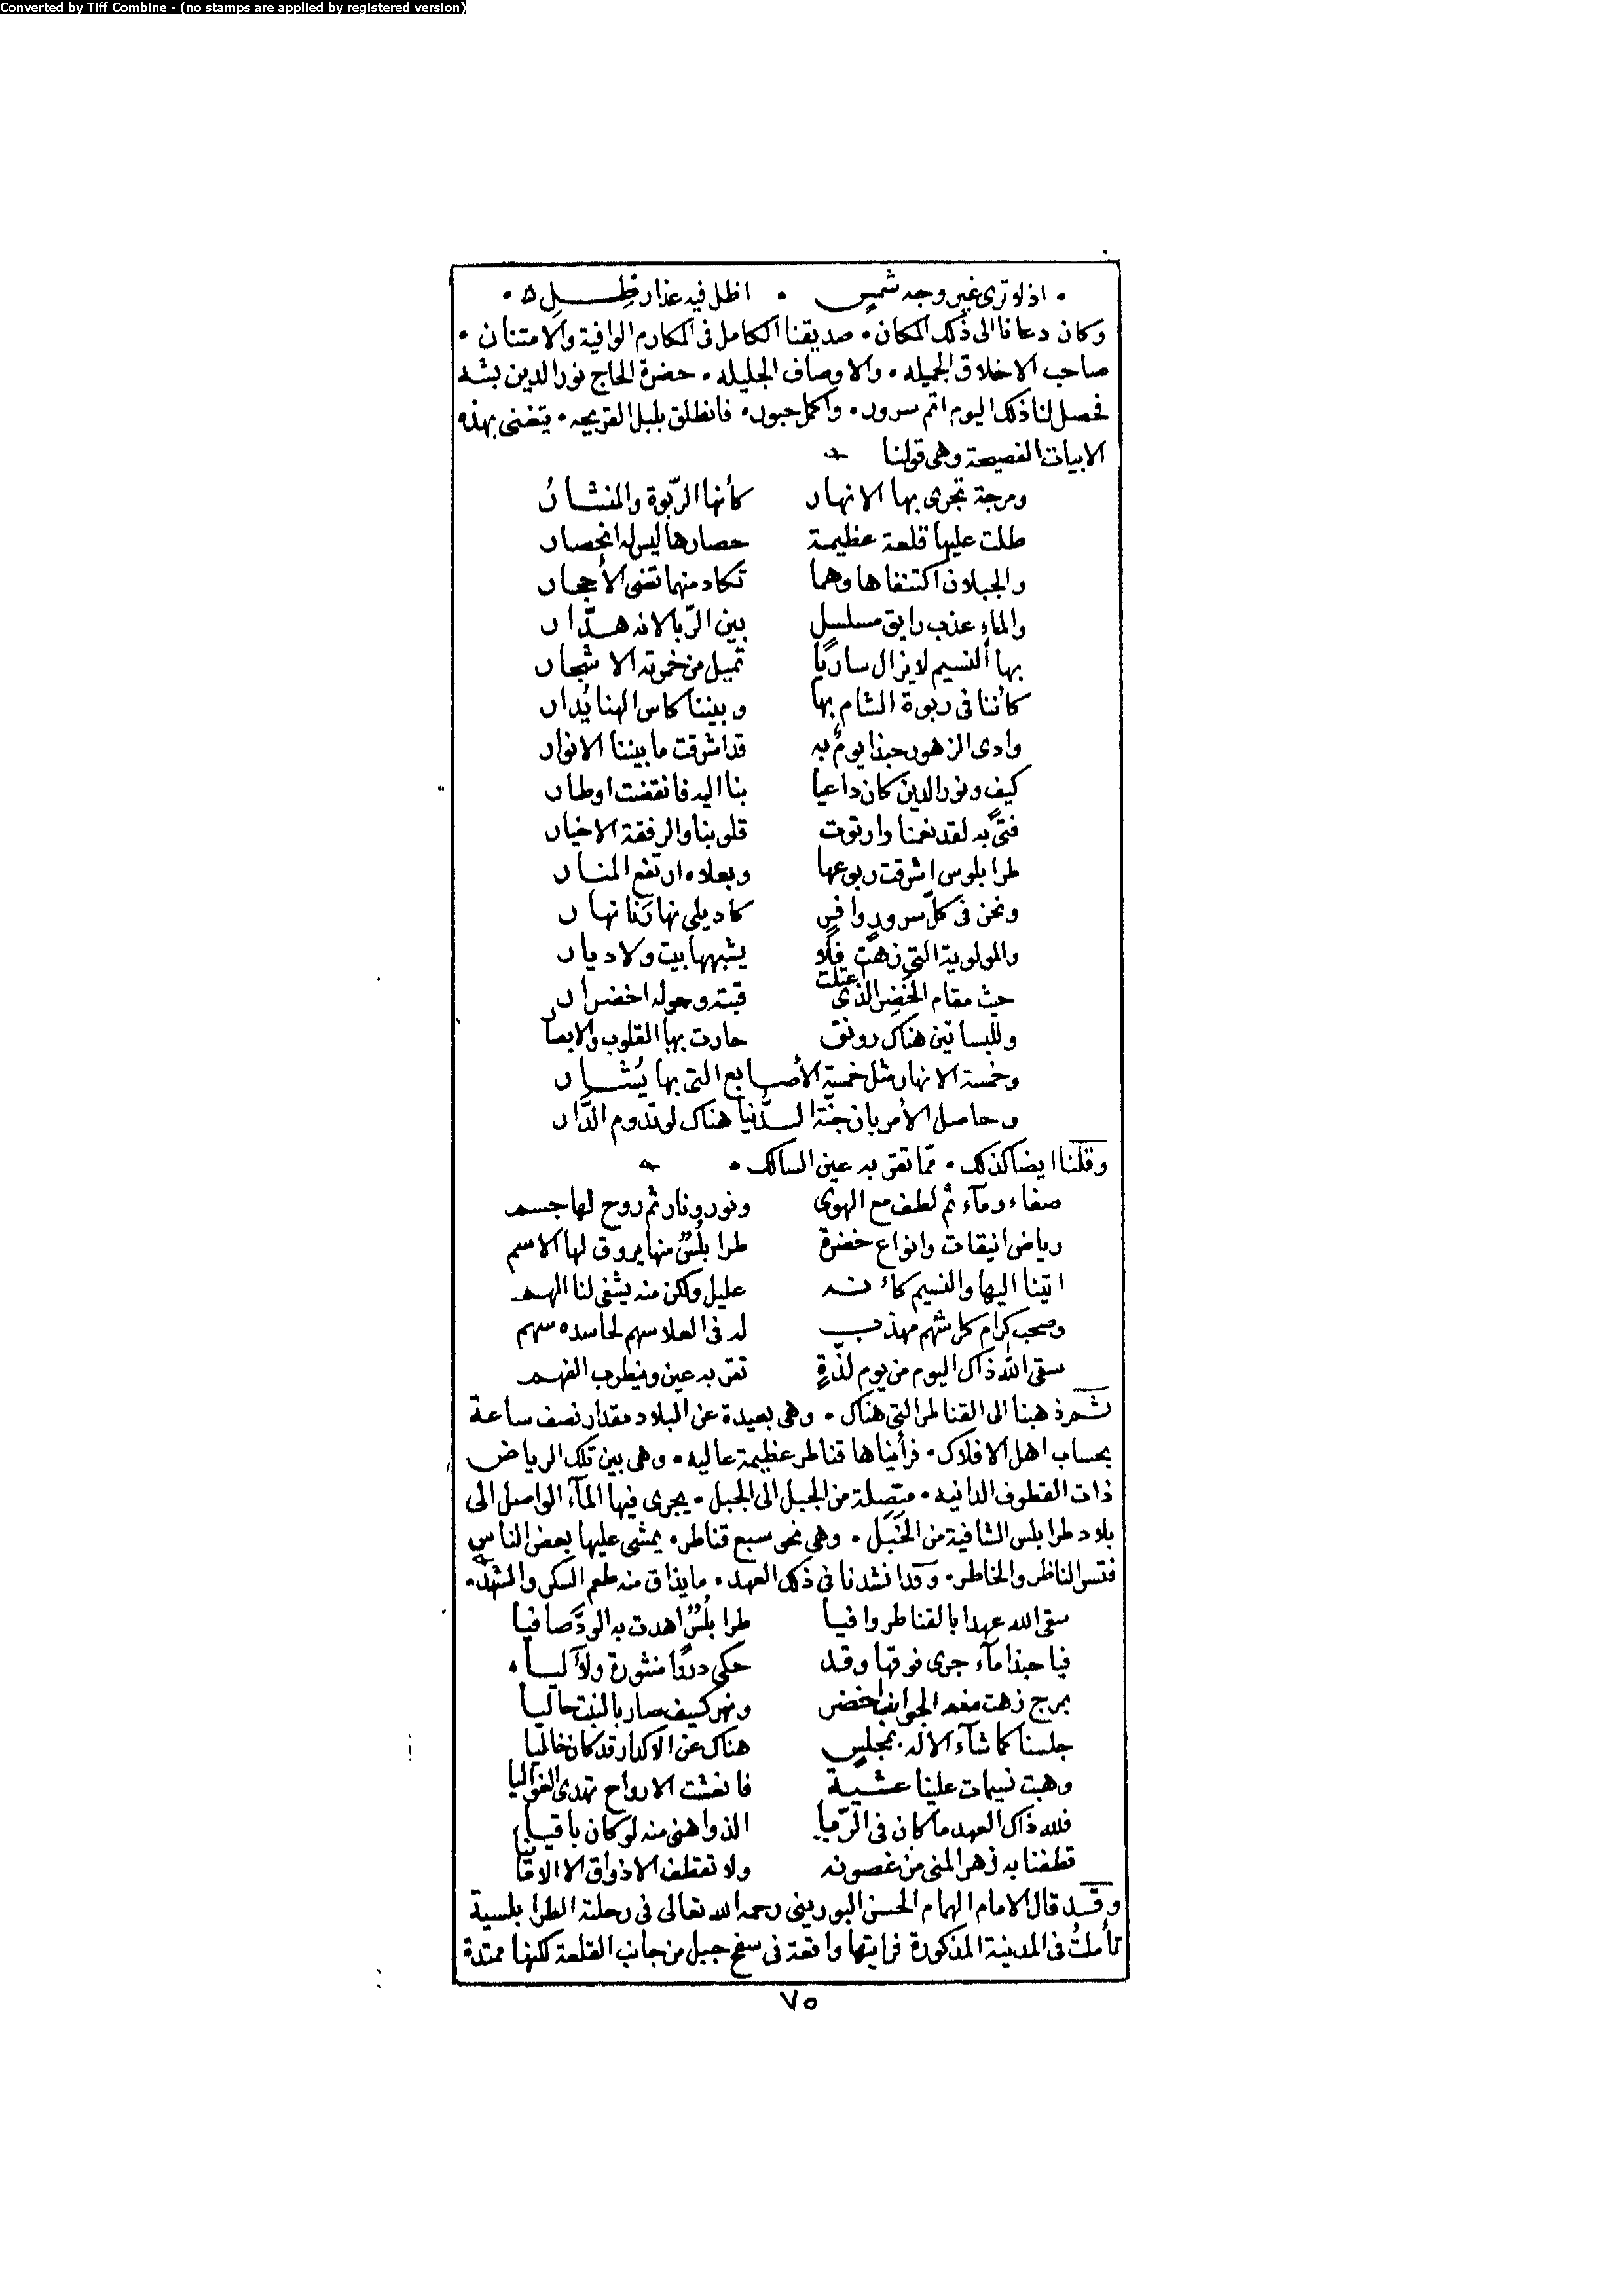 Converted by Tiff Combine - (no stamps are applied by registered version)
• اذ لا ترى غير وجه شمسٍ • اظل فيه عذار ظِلِ ه •
وكان دعانا الى ذلك المكان • صديقنا الكامل فى المكارم الوافية والامتنان •
صاحب الاخلاق الجميله • والاوصاف الجليله • حضرة الحاج نور الدين بشه
فحصل لنا ذلك اليوم اتم سرور • واكمل حبور • فانطلق بلبل القريحه • يتغنى بهذه
الابيات الفصيحة وهى قولنا
ومرجة تجرى بها الانهار كأنها الرّبوة والمنشارُ
طلت عليها قلعة عظيمة حصارها ليس له انحصار
والجبلان اكتنفاها وهما تكاد منهما تضى الأحجار
والماء عذب رايق مسلسل بين الرّبا لانه هدّار
بها النسيم لا يزال ساريًا تميل من خمرته الاشجار
كاننا فى ربوة الشام بها وبيننا كاس الهنا يُدار
وادى الزهور حبذا يومٌ به قد اشرقت ما بيننا الانوار
كيف ونور الدين كان داعيا بنا اليه فانقضت اوطار
فتىً به لقد نعمنا وارتوت قلوبنا والرفقة الاخيار
طرابلوس اشرقت ربوعها وبعلاه ارتفع المنار
ونحن فى كلّ سرورٍ وافرٍ كاد يلى نهارَنا نهار
والمولوية التى زهت فلا يشبهها بيت ولا ديار
حث مقام الخضر الذى اعتلت قبته وحوله اخضرار
وللبساتين هناك رونق حارت بها القلوب والابصار
وخمسة الانهار مثل خمسة الأصابع التى بها يُشار
وحاصل الأمر بان جنّة الدُّنيا هناك لو تدوم الدَّار
وقلنا ايضا كذلك • مما تقر به عين السالك •
صفاء وماء ثم لطف مع الهوى ونور ونار ثم روح لها جسم
رياض انيقات وانواع خضرة طرابلُسٌ منها يروق لها الاسم
اتينا اليها والنسيم كانه عليل ولكن منه يشفى لنا الهم
وصحب كرام كل شهم مهذب له فى العلا سهم لحاسده سهم
سقى الله ذاك اليوم من يوم لذّةٍ تقر به عين ويطرب الفهم
ثم ذهبنا الى القناطر التى هناك • وهى بعيدة عن البلاد مقدار نصف ساعة
بحساب اهل الافلاك • فرأيناها قناطر عظيمة عاليه • وهى بين تلك الرياض
ذات القطوف الدانيه • متصلة من الجبل الى الجبل • يجرى فيها المآء الواصل الى
بلاد طرابلس الشافية من الخَبَل • وهى نحو سبع قناطر • يمشى عليها بعض الناس
فتسر الناظر والخاطر • وقد انشدنا فى ذلك العهد • ما يذاق منه طعم السكر والشهد •
سقى الله عهدا بالقناطر وافيا طرابلُسٌ اهدت به الودَّ صافيا
فيا حبذا مآء جرى فوقها وقد حكى دررًا منثورة ولآليا •
بمرج زهت منه الجوانب اخضر ونهر كسيف صار بالنبت حاليا
جلسنا كما شآء الاله بمجلسٍ هناك عن الاكدار قد كان خاليا
وهبت نسيمات علينا عشية فانعشت الارواح تهدى الغواليا
فلله ذاك العهد ما كان فى الرّبا الذ واهنى منه لو كان باقيا
قطفنا به زهر المنى من غصونه ولا تقطف الاذواق الا الاقاحيا
وقد قال الامام الهمام الحسن البورينى رحمه الله تعالى فى رحلته الطرابلسية
تأملتُ فى المدينة المذكورة فرايتها واقعة فى سفح جبل من جانب القلعة لكنها ممتدة
٧٥